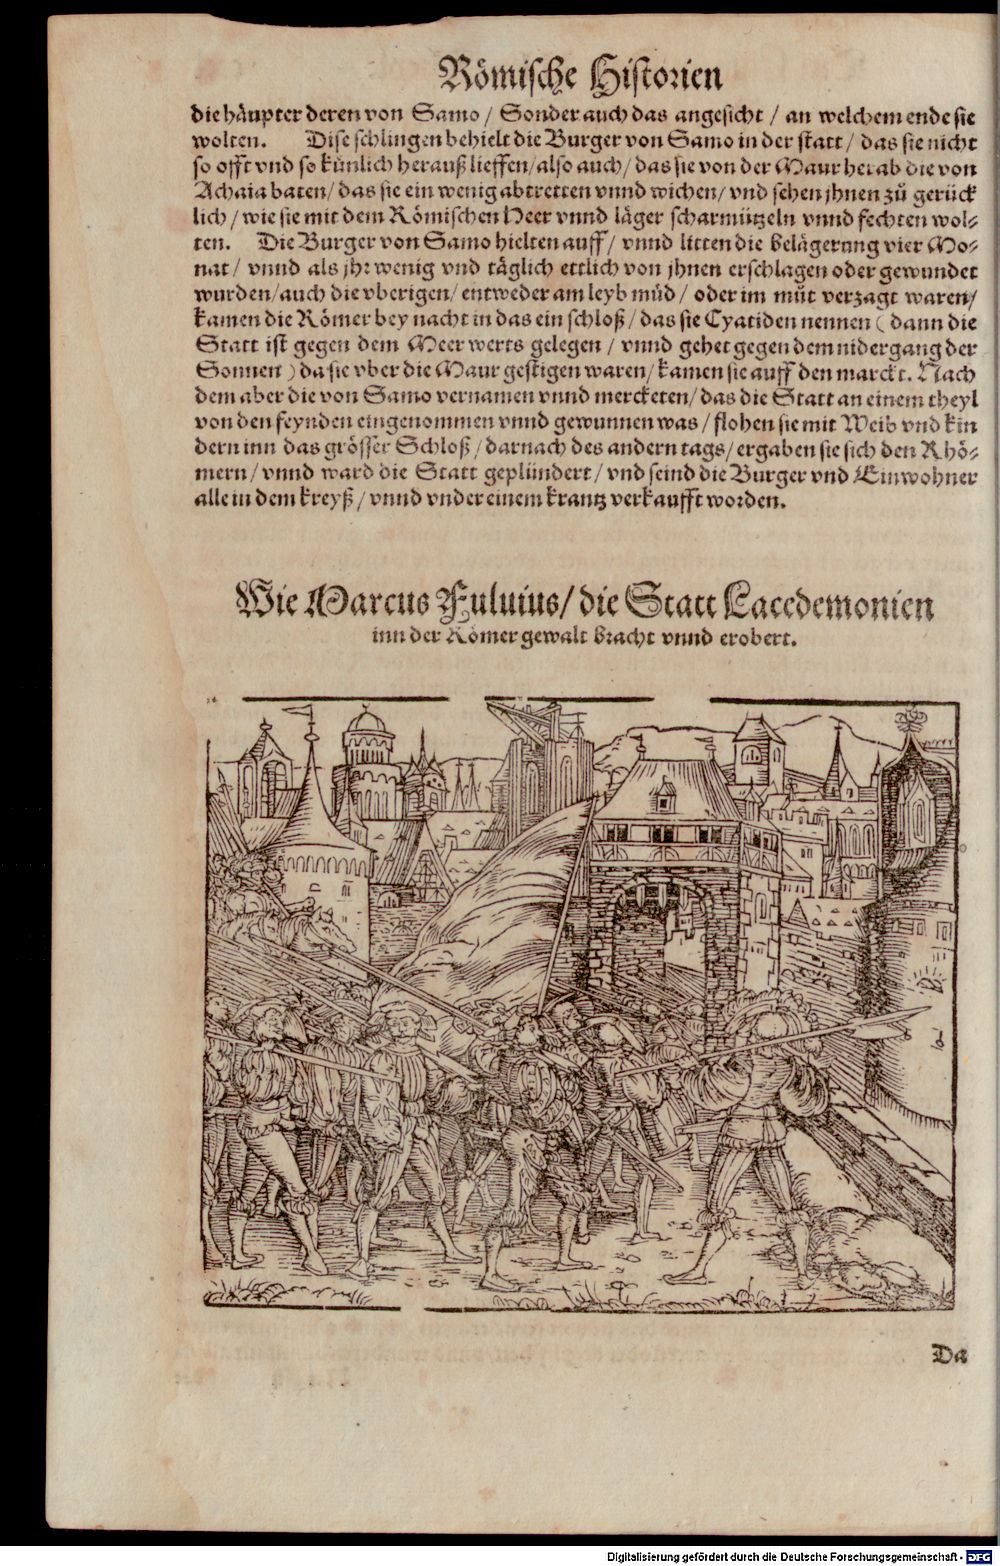 Römische Historien
die häupter deren von Samo / Sonder auch das angesicht / an welchem ende sie
wolten. Dise schlingen behielt die Burger von Samo in der statt / das sie nicht
so offt vnd so künlich herauß lieffen / also auch / das sie von der Maur herab die von
Achaia baten / das sie ein wenig abtretten vnnd wichen / vnd sehen jhnen zů gerück
lich / wie sie mit dem Römischen Heer vnnd läger scharmützeln vnnd fechten wol-
ten. Die Burger von Samo hielten auff / vnnd litten die belägerung vier Mo-
nat / vnnd als jhr wenig vnd täglich ettlich von jhnen erschlagen oder gewundet
wurden / auch die vberigen / entweder am leyb müd / oder im můt verzagt waren /
kamen die Römer bey nacht in das ein schloß / das sie Cyatiden nennen ( dann die
Statt ist gegen dem Meer werts gelegen / vnnd gehet gegen dem nidergang der
Sonnen ) da sie vber die Maur gestigen waren / kamen sie auff den marckt. Nach
dem aber die von Samo vernamen vnnd merckten / das die Statt an einem theyl
von den feynden eingenommen vnnd gewunnen was / flohen sie mit Weib vnd kin
dern inn das grösser Schloß / darnach des andern tags / ergaben sie sich den Rhö-
mern / vnnd ward die Statt geplündert / vnd seind die Burger vnd Einwohner
alle in dem kreyß / vnnd vnder einem krantz verkaufft worden.
Wie Marcus Fuluius / die Statt Lacedemonien
inn der Römer gewalt bracht vnnd erobert.
Da
Digitalisierung gefördert durch die Deutsche Forschungsgemeinschaft - DFG